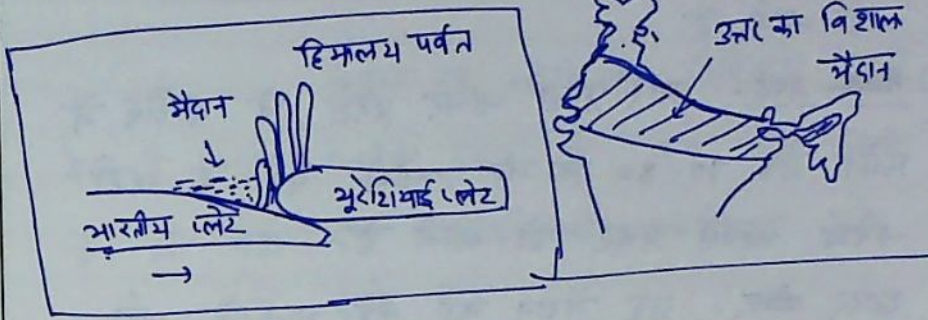 हिमालय पर्वत
मैदान
यूरेशियाई प्लेट
भारतीय प्लेट
उत्तर का विशाल
मैदान